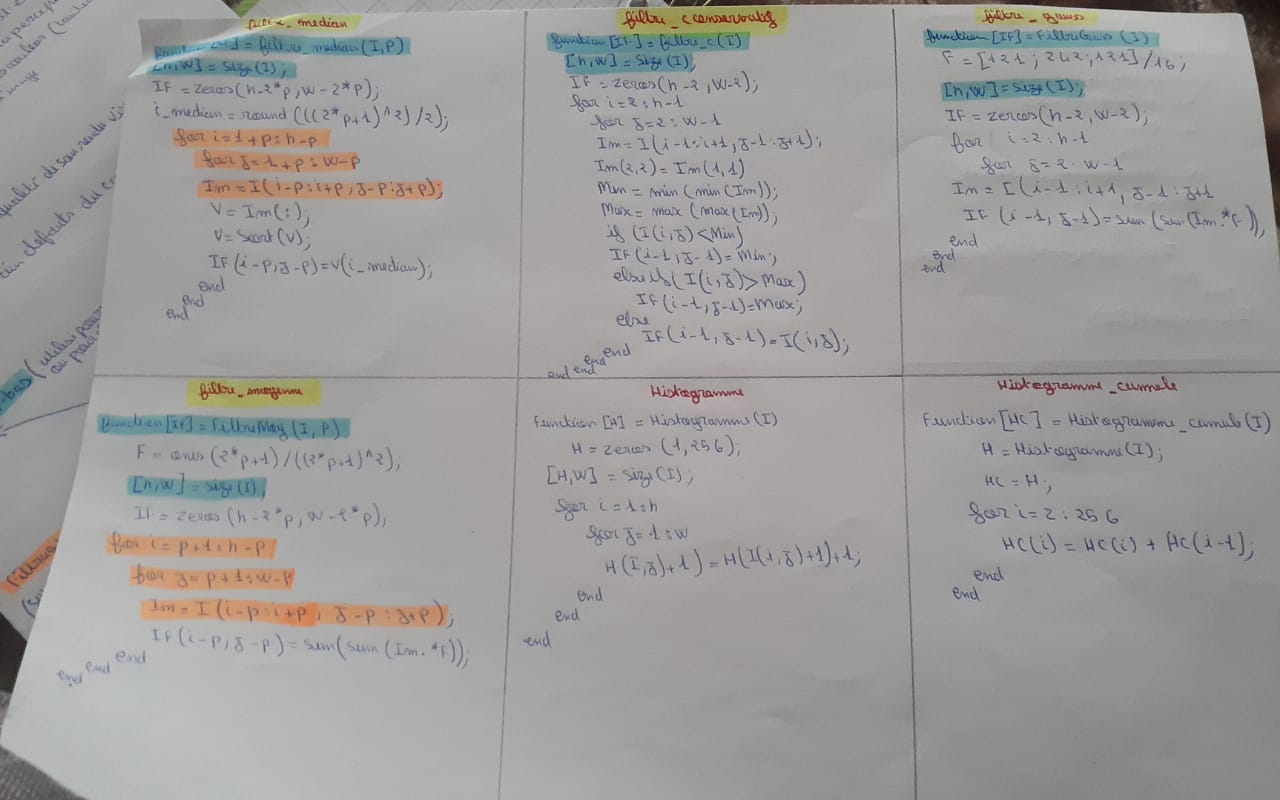 filtre_median
function [If] = filtre_median(I,P)
[h,W] = Size(I);
IF = zeros(h-2*p, w-2*p);
i_median = round(((2*p+1)^2)/2);
for i=1+p:h-p
for j=1+p:w-p
Im=I(i-p:i+p,j-p:j+p);
V=Im(:);
V=Sort(V);
IF(i-p,j-p)=V(i_median);
end
end
end
filtre_cconservatif
function[If]=filtre_c(I)
[h,W]=Size(I);
IF=zeros(h-2,w-2);
for i=2:h-1
for j=2:w-1
Im=I(i-1:i+1,j-1:j+1);
Im(2,2)=Im(1,1)
Min=min(min(Im));
Max=max(max(Im));
if (I(i,j)<Min)
IF(i-1,j-1)=Min;
elseif(I(i,j)>Max)
IF(i-1,j-1)=Max;
else
IF(i-1,j-1)=I(i,j);
end
end
end
end
filtre_gauss
function[IF]=FiltreGaus (I)
F=[121;242;121]/16;
[h,W]=Size(I);
IF=zeros(h-2,w-2);
for i=2:h-1
for j=2:w-1
Im=I(i-1:i+1,j-1:j+1
IF(i-1,j-1)=sum(Sum(Im.*F)),
end
end
end
filtre_moyenne
function[If]=FiltreMoy(I,P)
F=ones(2*p+1)/((2*p+1)^2);
[h,W]=size(I),
If=zeros(h-2*p,w-2*p),
for i=p+1:h-p
for j=p+1:w-p
Im=I(i-p:i+p, j-p:j+p);
IF(i-p,j-p)=Sum(sum(Im.*f));
end
end
end
Histogramme
Function[H]=Histogramme(I)
H=zeros(1,256);
[H,W]=Size(I);
for i=1:h
for j=1:w
H(I,j)+1)=H(I(1,j)+1)+1;
end
end
end
Histogramme_cumule
Function[HC]=Histogramme_cumule(I)
H=Histogramme(I);
HC=H;
for i=2:256
HC(i)=HC(i)+HC(i-1);
end
end